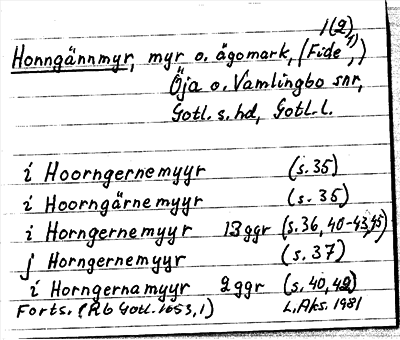 1(2)
Honngännmyr, myr o. ägomark, (Fide,¹))
Öja o. Vamlingbo snr,
Gotl. s. hd, Gotl. l.
i Hoorngernemyyr (s. 35)
i Hoorngärnemyyr (s. 35)
i Horngernemyyr 13 ggr (s. 36, 40-43, 45)
j Horngernemyyr (s. 37)
i Horngernamyyr 2 ggr (s. 40, 42)
Forts. (Rb Gotl. 1653, 1) L. Aks. 1981